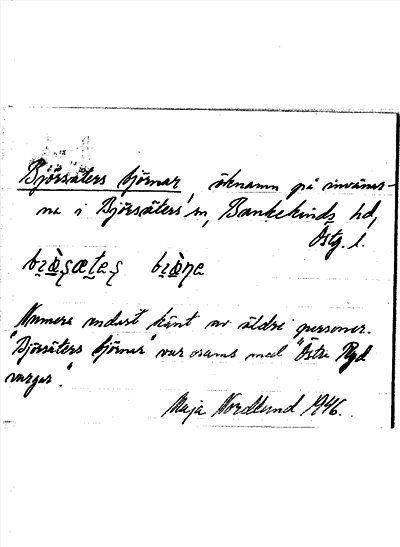 Björsäters björnar, öknamn på invånar-
na i Björsäters sn, Bankekinds hd,
Östg. l.
Numera endast känt av äldre personer.
"Björsäters björnar" var osams med "Östra Ryd
vargar."
Maja Nordlund 1946.